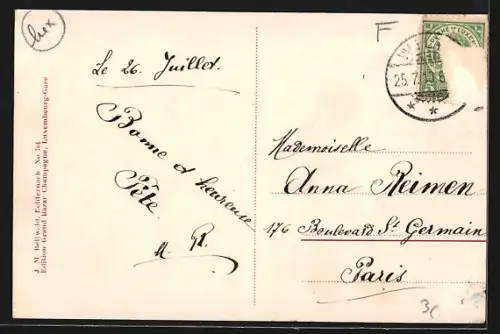 lux
F
25.7
Le 26. Juillet.
Bonne et heureuse
Fête
Mademoiselle
Anna Reimen
176 Boulevard St Germain
Paris
J. M. Bellwald, Echternach No. 784
Edition Grand Bazar Champagne, Luxembourg-Gare